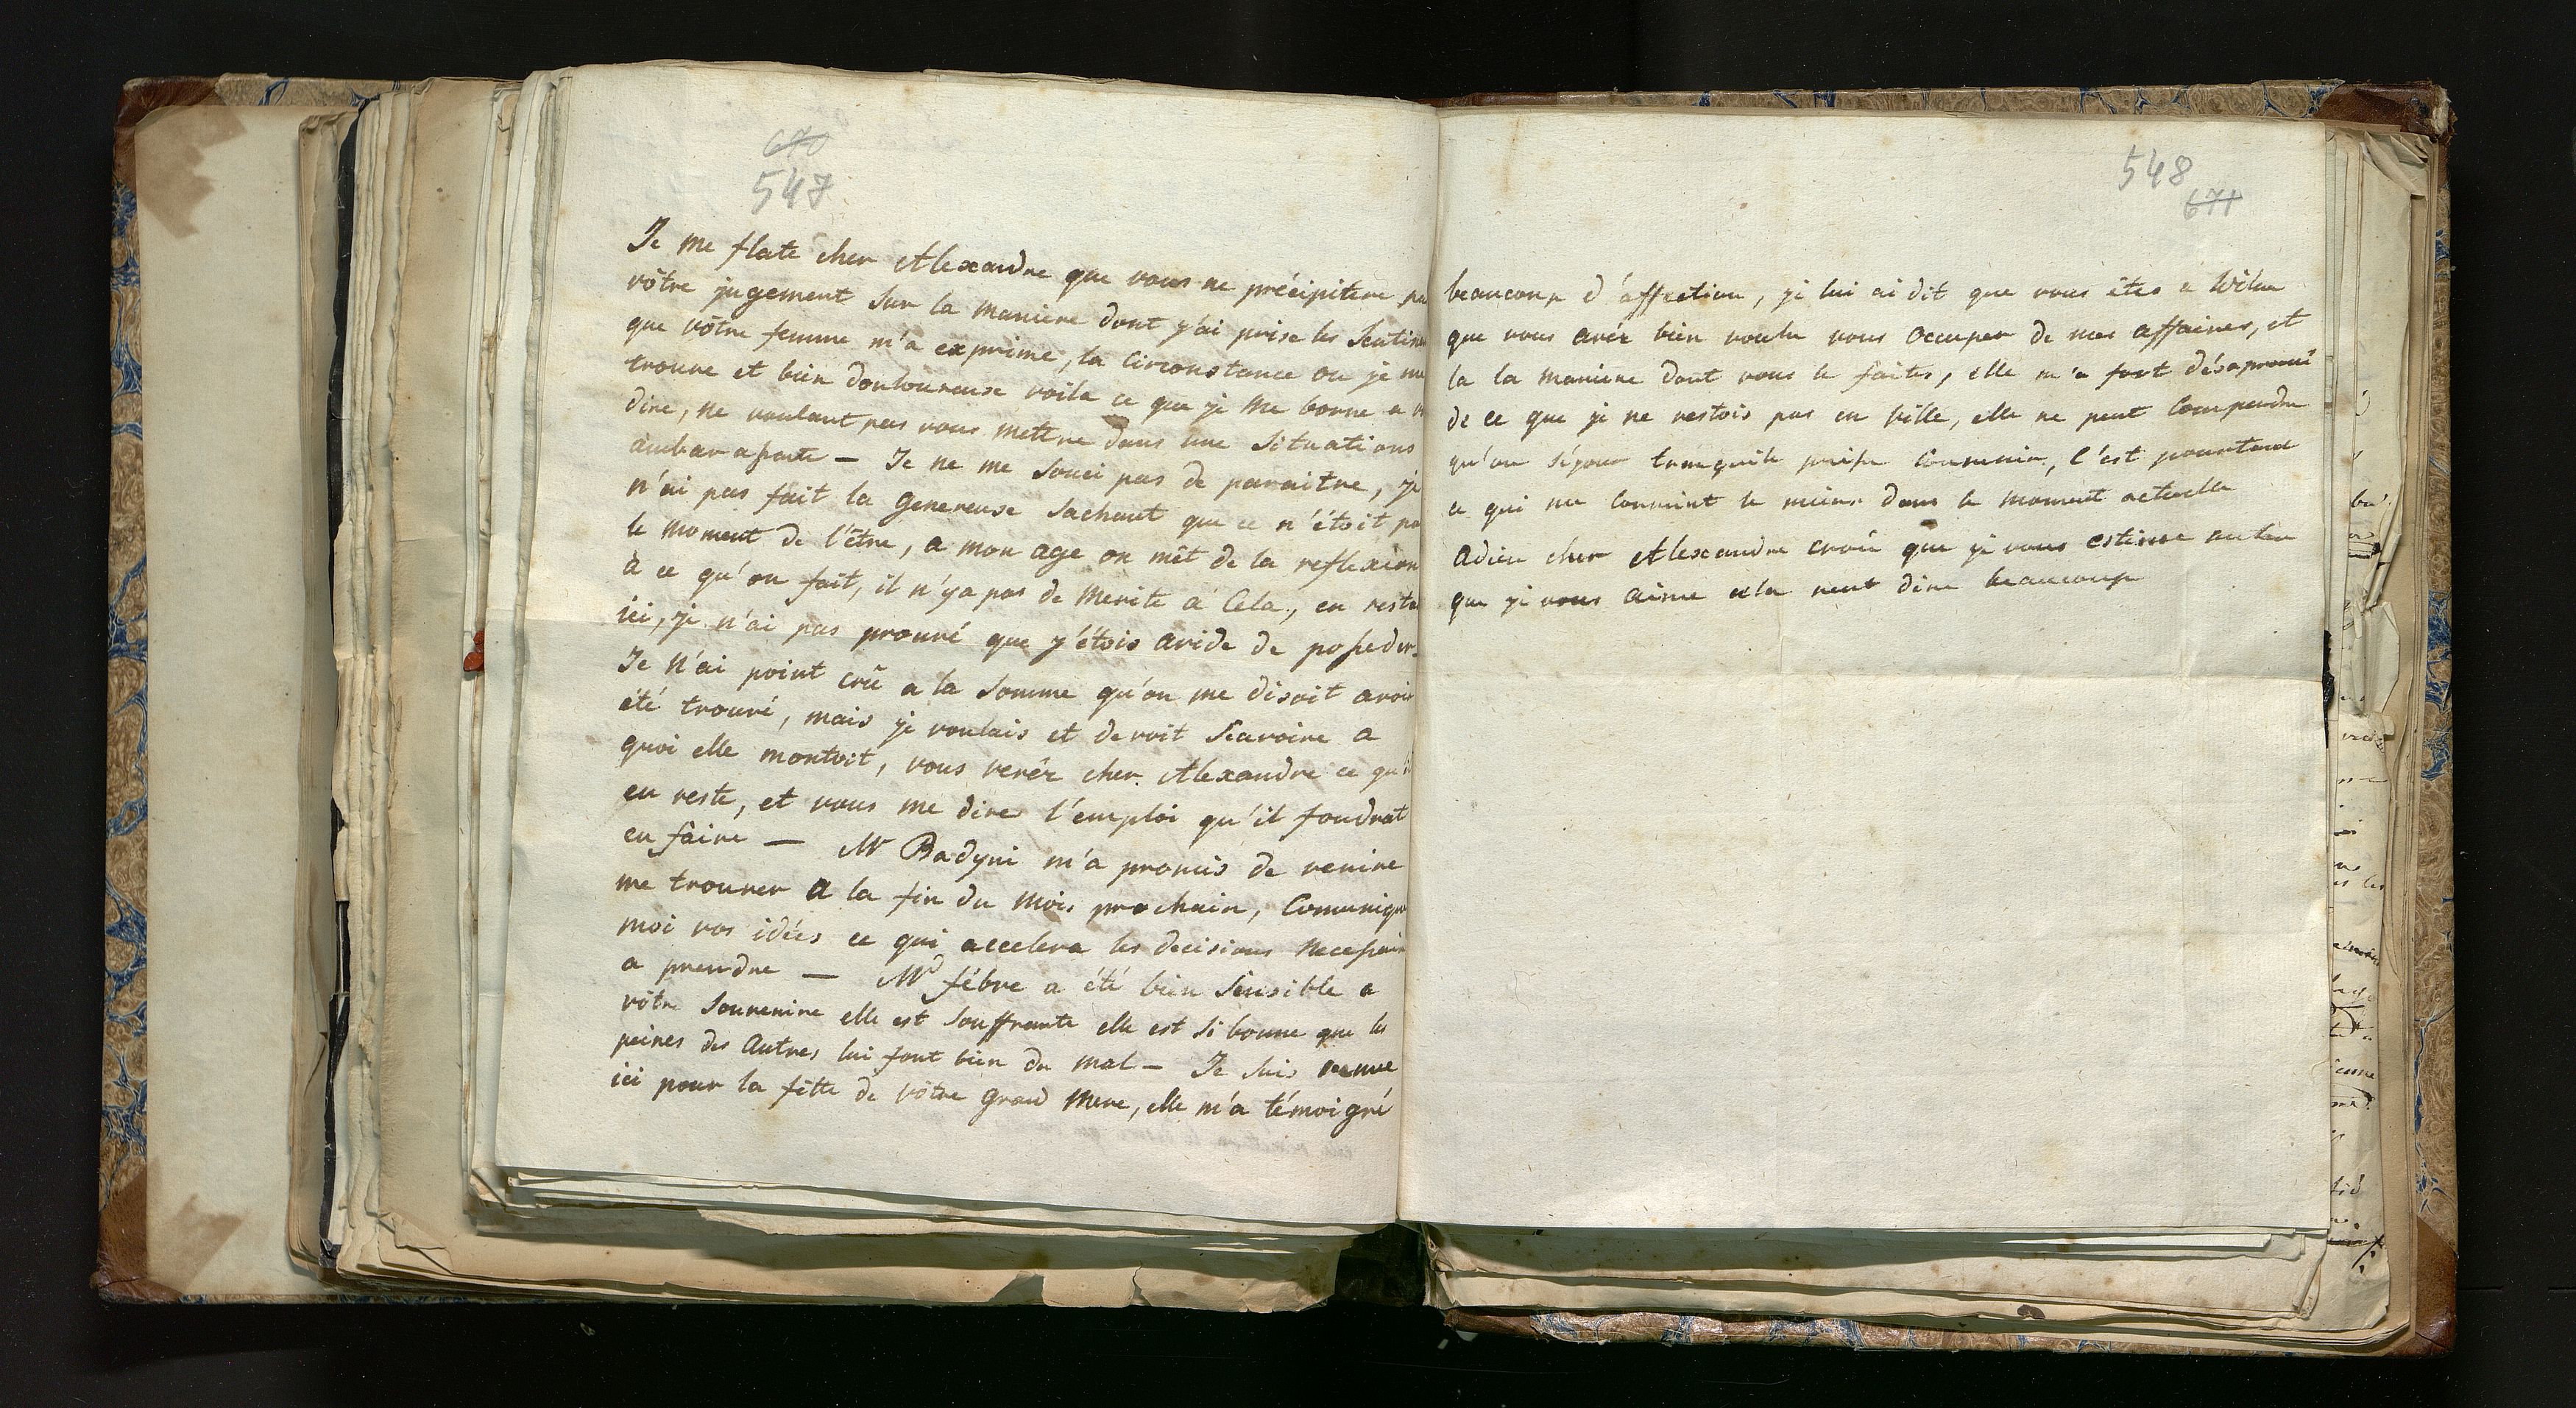 670
547
Je me flate cher Alexandre que vous ne précipitere pa
vôtre jugement Sur la maniere dont j'ai prise les Sentim
que vôtre femme m'a exprimé, la circonstance ou je me
trouve et bien douloureuse voila ce que je me borne a v
dire, ne voulant pas vous mettre dans une Situations
— Je ne me Souci pas de paraitre, je
n'ai pas fait la genereuse Sachant que ce n'étoit pa
le moment de l'être, a mon age on mêt de la reflexion
à ce qu'on fait, il n'ya pas de merite a Cela, en resta
ici, je n'ai pas prouvé que j'étois avide de posseder.
Je n'ai point crû a la Somme qu'on me disoit avoir
été trouvé, mais je voulais et devoit Scavoire a
quoi elle montoit, vous veréz cher Alexandre ce qu'i
en reste, et vous me direz l'emploi qu'il foudrat
en fâire — Mr Badyni m'a promis de venire
me trouver a la fin du mois prochain, Comunique
moi vos idées ce qui accelera les decisions necessair
a prendre — Md fébre a été bien Sensible a
vôtre Souvenire elle est Souffrante elle est Si bonne que les
peines des Autres lui font bien du mal — Je Suis venue
ici pour la fête de vôtre grand mere, elle m'a témoigné
548
671
beaucoup d'affection, je lui ai dit que vous êtes a Wilna
que vous avéz bien voulu vous occuper de mes affaires, et
la la maniere dont vous le faites, elle m'a fort désaprouvé
de ce que je ne restois pas en ville, elle ne peut Comprendre
qu'un séjour tranquile puisse Convenir, c'est pourtant
ce qui me convient le mieux dans le moment actuelle
adieu cher Alexandre croié que je vous estime autan
que je vous aime cela veut dire beaucoup